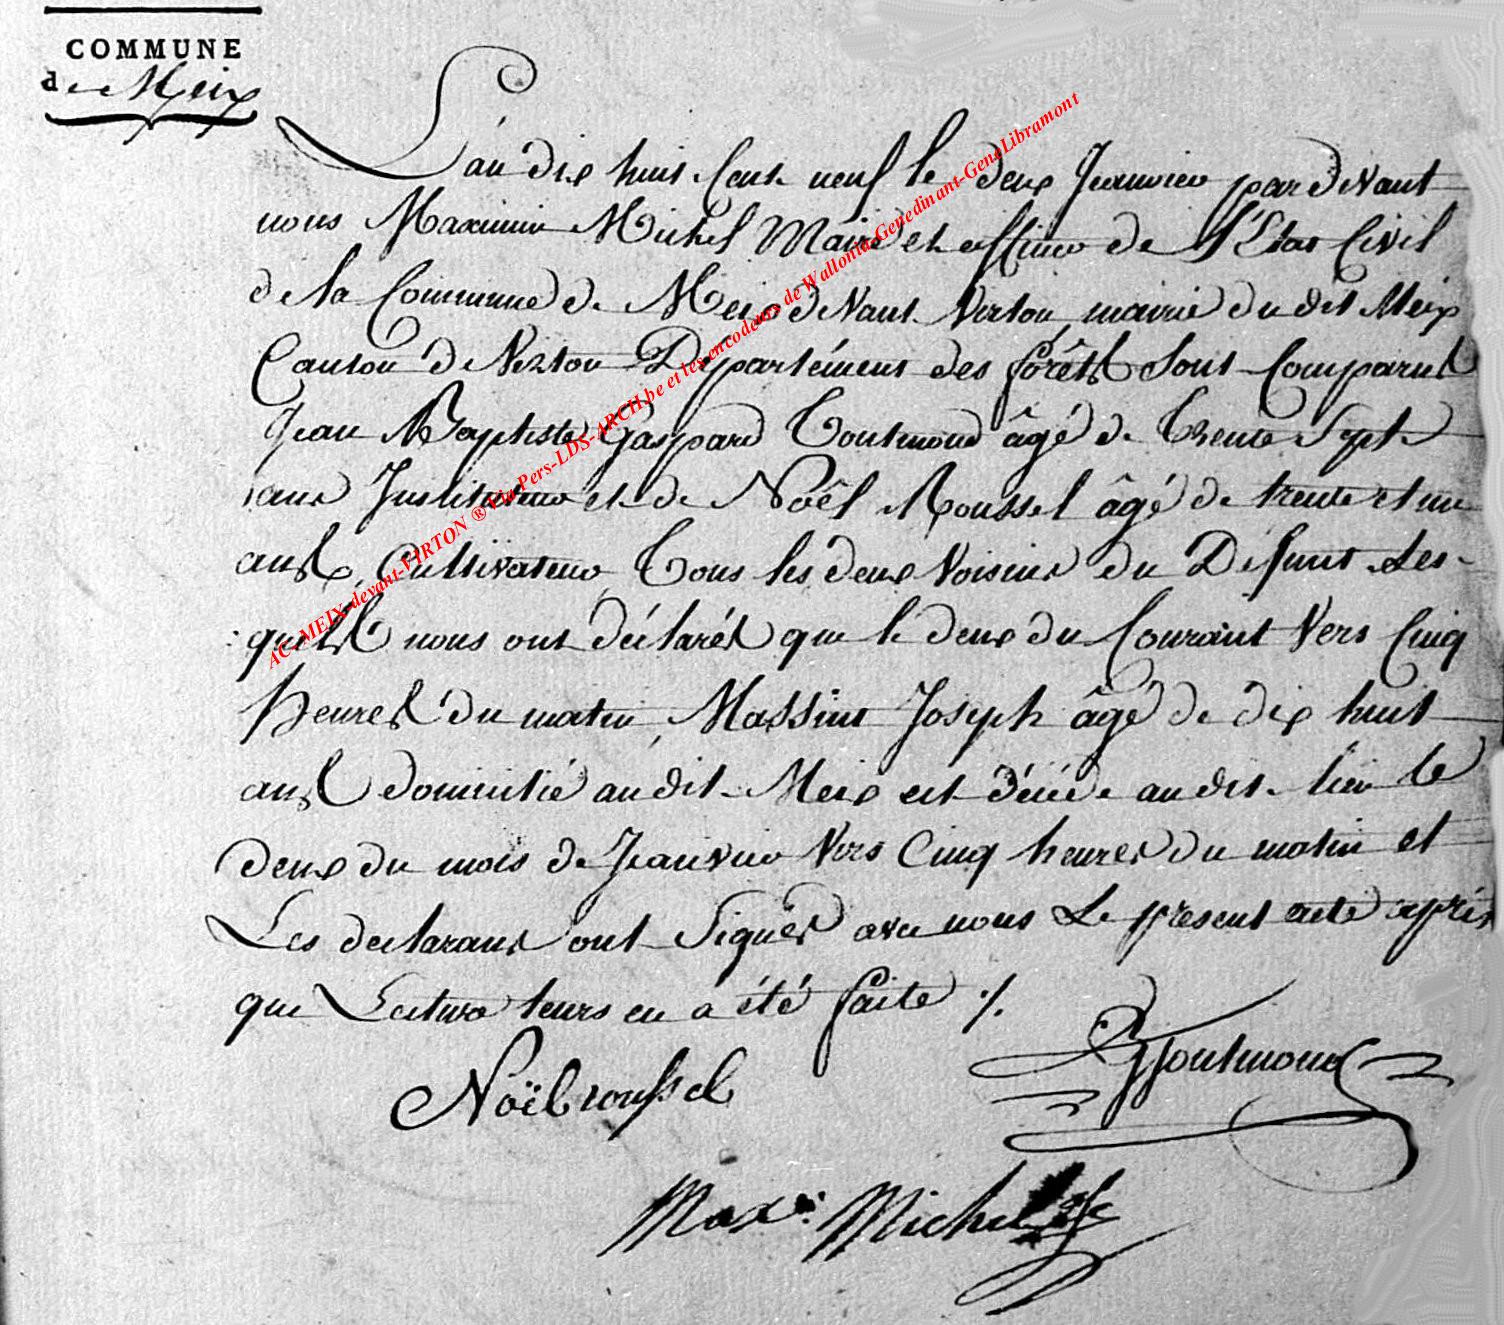 COMMUNE
de Meix
L'an dix huit Cent neuf le deux Jeanvier pardevant
nous Maximin Michel Maire et officier de l'Etat Civil
de la Commune de Meix devant Virton, mairie du dit Meix
Canton de Virton Département des forêts Sont Comparus
Jean Baptiste Gaspard Toutmond âgé de Trente Sept
ans Instituteur et de Noêl Roussel âgé de trente et un
ans, Cultivateur, Tous les deux Voisins du Défunt Les-
quels nous ont déclarés que le deux du Courant Vers Cinq
heures du matin, Massint Joseph âgé de dix huit
ans domicilié au dit Meix est décédé au dit lieu le
deux du mois de Jeanvier Vers Cinq heures du matin et
Les declarans ont Signés avec nous Le present acte après
que Lecture leurs en a été faite ./.
Noël roussel
Toutmond
Max.in Michel
AC - MEIX-devant-VIRTON ® Via Pers-LDS-ARCH.be et les encodeurs de Wallonia-Genedinant-GeneLibramont